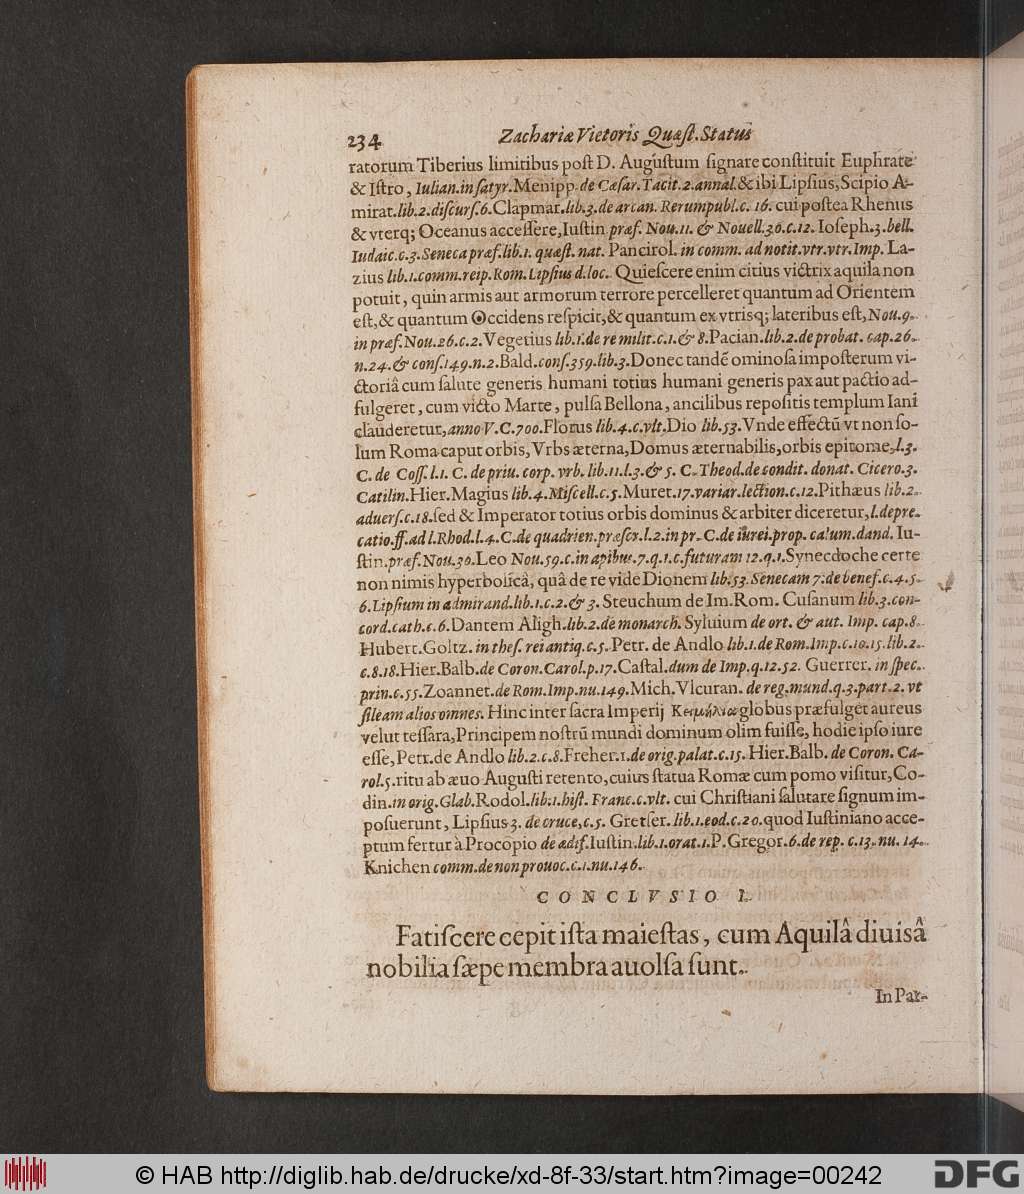 234 Zachariæ Vietoris Quæſt. Status
ratorum Tiberius limitibus poſt D. Auguſtum ſignare conſtituit Euphrate
& Iſtro, Iulian. in ſatyr. Menipp. de Cæſar. Tacit. 2. annal. & ibi Lipſius, Scipio A-
mirat. lib. 2. diſcurſ. 6. Clapmar. lib. 3. de arcan. Rerumpubl. c. 16. cui poſtea Rhenus
& vterq; Oceanus acceſſere, Iuſtin præf. Nou. 11. & Nouell. 36. c. 12. Ioſeph. 3. bell.
Iudaic. c. 3. Seneca præf. lib. 1. quæſt. nat. Pancirol. in comm. ad notit. vtr. vtr. Imp. La-
zius lib. 1. comm. reip. Rom. Lipſius d. loc. Quieſcere enim citius victrix aquila non
potuit, quin armis aut armorum terrore percelleret quantum ad Orientem
eſt, & quantum Occidens reſpicit, & quantum ex vtrisq; lateribus eſt, Nou. 9.
in præf. Nou. 26. c. 2. Vegetius lib. 1. de re milit. c. 1. & 8. Pacian. lib. 2. de probat. cap. 26.
n. 24. & conſ. 149. n. 2. Bald. conſ. 359. lib. 3. Donec tandē ominoſa impoſterum vi-
ctoriâ cum ſalute generis humani totius humani generis pax aut pactio ad-
fulgeret, cum victo Marte, pulſa Bellona, ancilibus repoſitis templum Iani
clauderetur, anno V. C. 700. Florus lib. 4. c. vlt. Dio lib. 53. Vnde effectū vt non ſo-
lum Roma caput orbis, Vrbs æterna, Domus æternabilis, orbis epitome, l. 3.
C. de Coſſ. l. 1. C. de priu. corp. vrb. lib. 11. l. 3. & 5. C. Theod. de condit. donat. Cicero. 3.
Catilin. Hier. Magius lib. 4. Miſcell. c. 5. Muret. 17. variar. lection. c. 12. Pithæus lib. 2.
aduerſ. c. 18. ſed & Imperator totius orbis dominus & arbiter diceretur, l. depre-
catio. ff. ad l. Rhod. l. 4. C. de quadrien. præſcr. l. 2. in pr. C. de iurei. prop. calum. dand. Iu-
ſtin. præf. Nou. 30. Leo Nou. 59. c. in apibus. 7. q. 1. c. futuram 12. q. 1. Synecdoche certe
non nimis hyperbolicâ, quâ de re vide Dionem lib. 53. Senecam 7. de benef. c. 4. 5.
6. Lipſium in admirand. lib. 1. c. 2. & 3. Steuchum de Im. Rom. Cuſanum lib. 3. con-
cord. cath. c. 6. Dantem Aligh. lib. 2. de monarch. Syluium de ort. & aut. Imp. cap. 8.
Hubert. Goltz. in theſ. rei antiq. c. 5. Petr. de Andlo lib. 1. de Rom. Imp. c. 10. 15. lib. 2.
c. 8. 18. Hier. Balb. de Coron. Carol. p. 17. Caſtal. dum de Imp. q. 12. 52. Guerrer. in ſpec.
prin. c. 55. Zoannet. de Rom. Imp. nu. 149. Mich. Vlcuran. de reg. mund. q. 3. part. 2. vt
ſileam alios omnes. Hinc inter ſacra Imperij Κειμήλια globus præfulget aureus
velut teſſara, Principem noſtrū mundi dominum olim fuiſſe, hodie ipſo iure
eſſe, Petr. de Andlo lib. 2. c. 8. Freher. 1. de orig. palat. c. 15. Hier. Balb. de Coron. Ca-
rol. 5. ritu ab æuo Auguſti retento, cuius ſtatua Romæ cum pomo viſitur, Co-
din. in orig. Glab. Rodol. lib. 1. hiſt. Franc. c. vlt. cui Chriſtiani ſalutare ſignum im-
poſuerunt, Lipſius 3. de cruce, c. 5. Gretſer. lib. 1. eod. c. 20. quod Iuſtiniano acce-
ptum fertur à Procopio de ædif. Iuſtin. lib. 1. orat. 1. P. Gregor. 6. de rep. c. 13. nu. 14.
Knichen comm. de non prouoc. c. 1. nu. 146.
CONCLVSIO I.
Fatiſcere cepit iſta maieſtas, cum Aquilâ diuisâ
nobilia ſæpe membra auolſa ſunt.
In Par-
© HAB http://diglib.hab.de/drucke/xd-8f-33/start.htm?image=00242
DFG